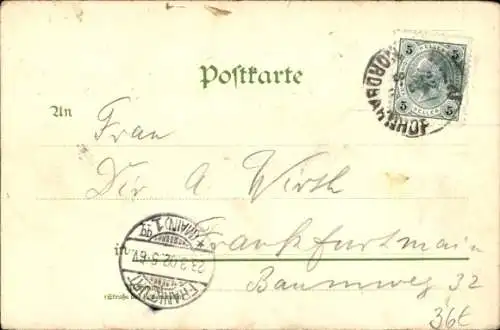 Postkarte
An
Frau
Dir A Wirth
in Frankfurtmain
Baumweg 32
36t
5 5
HELLER
5 5
NORDBAHN
FRANKFURT (MAIN) 1
23.3.02. 5-6 V.